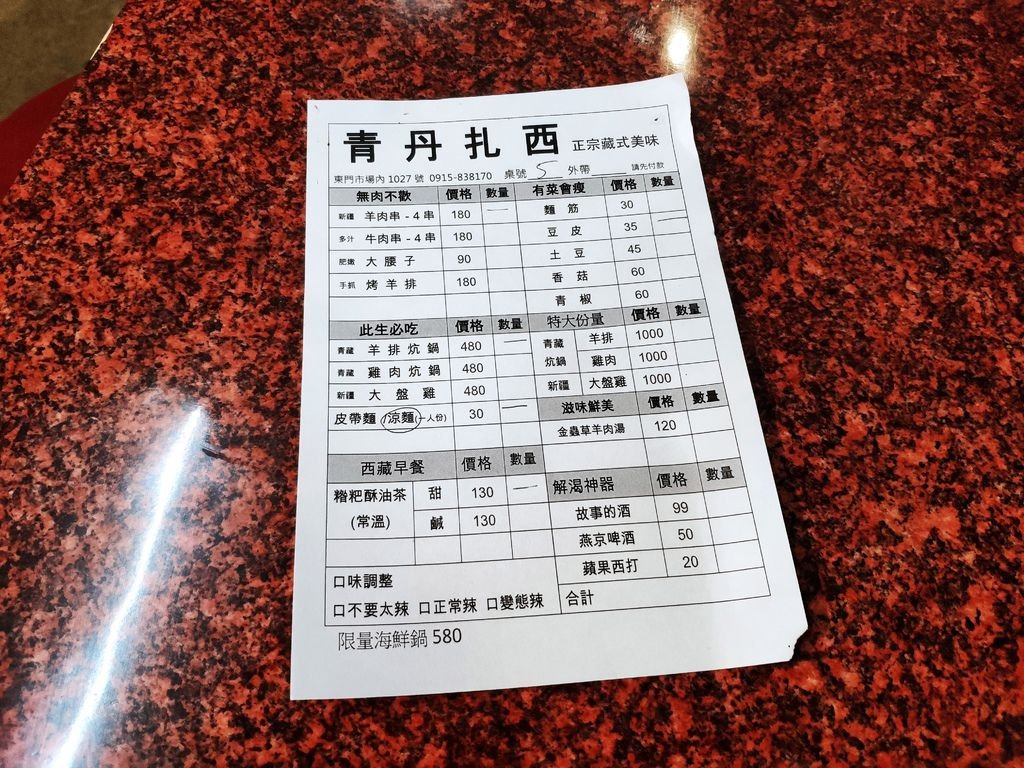 青丹扎西 正宗藏式美味
東門市場內 1027 號 0915-838170 桌號 5 外帶 請先付款
無肉不歡 價格 數量 有菜會瘦 價格 數量
新疆 羊肉串 - 4 串 180 一 麵筋 30
多汁 牛肉串 - 4 串 180 豆皮 35 二
肥嫩 大腰子 90 土豆 45
手抓 烤羊排 180 香菇 60
青椒 60
此生必吃 價格 數量 特大份量 價格 數量
青藏 羊排炕鍋 480 一 青藏炕鍋 羊排 1000
青藏 雞肉炕鍋 480 雞肉 1000
新疆 大盤雞 480 新疆 大盤雞 1000
皮帶麵/涼麵(一人份) 30 一 滋味鮮美 價格 數量
金蟲草羊肉湯 120
西藏早餐 價格 數量 解渴神器 價格 數量
糌粑酥油茶 甜 130 一 故事的酒 99
(常溫) 鹹 130 燕京啤酒 50
蘋果西打 20
口味調整
口不要太辣 口正常辣 口變態辣 合計
限量海鮮鍋 580